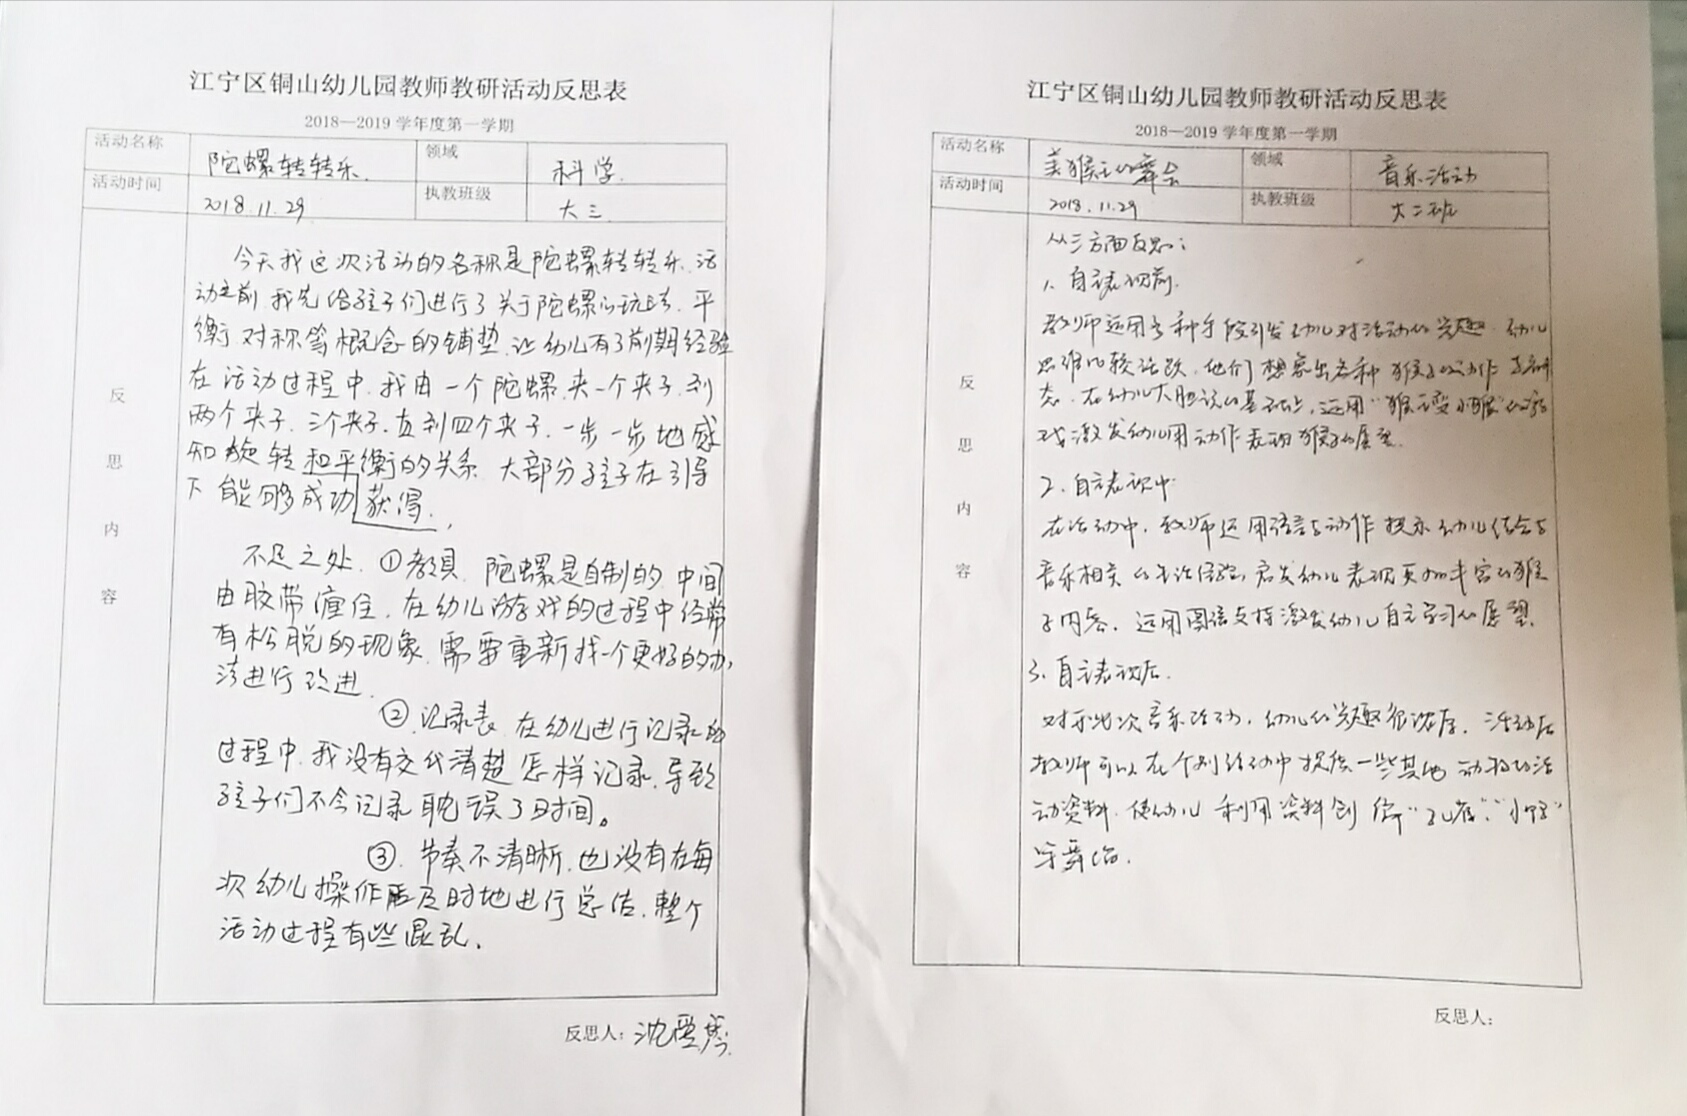 江宁区铜山幼儿园教师教研活动反思表
2018—2019学年度第一学期
活动名称 陀螺转转乐. 领域 科学.
活动时间 2018.11.29 执教班级 大三.
反思内容
今天我这次活动的名称是陀螺转转乐.活
动之前,我先给孩子们进行了关于陀螺的玩法.平
衡对称等概念的铺垫.让幼儿有了前期经验
在活动过程中.我由一个陀螺.夹一个夹子.到
两个夹子.三个夹子.直到四个夹子.一步一步地感
知旋转和平衡的关系.大部分孩子在引导
下能够成功获得.
不足之处.①教具.陀螺是自制的.中间
由胶带缠住.在幼儿游戏的过程中经常
有松脱的现象.需要重新找一个更好的办
法进行改进.
②.记录表.在幼儿进行记录的
过程中.我没有交代清楚怎样记录.导致
孩子们不会记录耽误了时间。
③.节奏不清晰.也没有在每
次幼儿操作后及时地进行总结.整个
活动过程有些混乱.
反思人:
江宁区铜山幼儿园教师教研活动反思表
2018—2019学年度第一学期
活动名称 美猴王的舞会 领域 音乐活动
活动时间 2018.11.29 执教班级 大二班
反思内容
从三方面反思:
1.自主表现前.
教师运用多种手段引发幼儿对活动的兴趣.幼儿
思维比较活跃.他们想象出各种猴子的动作
态.在幼儿大胆说的基础上,运用"猴王变小猴"的游
戏激发幼儿用动作表现猴子的愿望.
2.自主表现中
在活动中.教师运用语言与动作提示幼儿结合与
音乐相关的生活经验.启发幼儿表现更加丰富的猴
子内容.运用图谱支持激发幼儿自主学习的愿望.
3.自主表现后.
对于此次音乐活动,幼儿的兴趣很浓厚.活动后
教师可以在个别活动中提供一些其他动物的活
动资料.使幼儿利用资料创编"孔雀""小鸭子"
等舞会.
反思人: